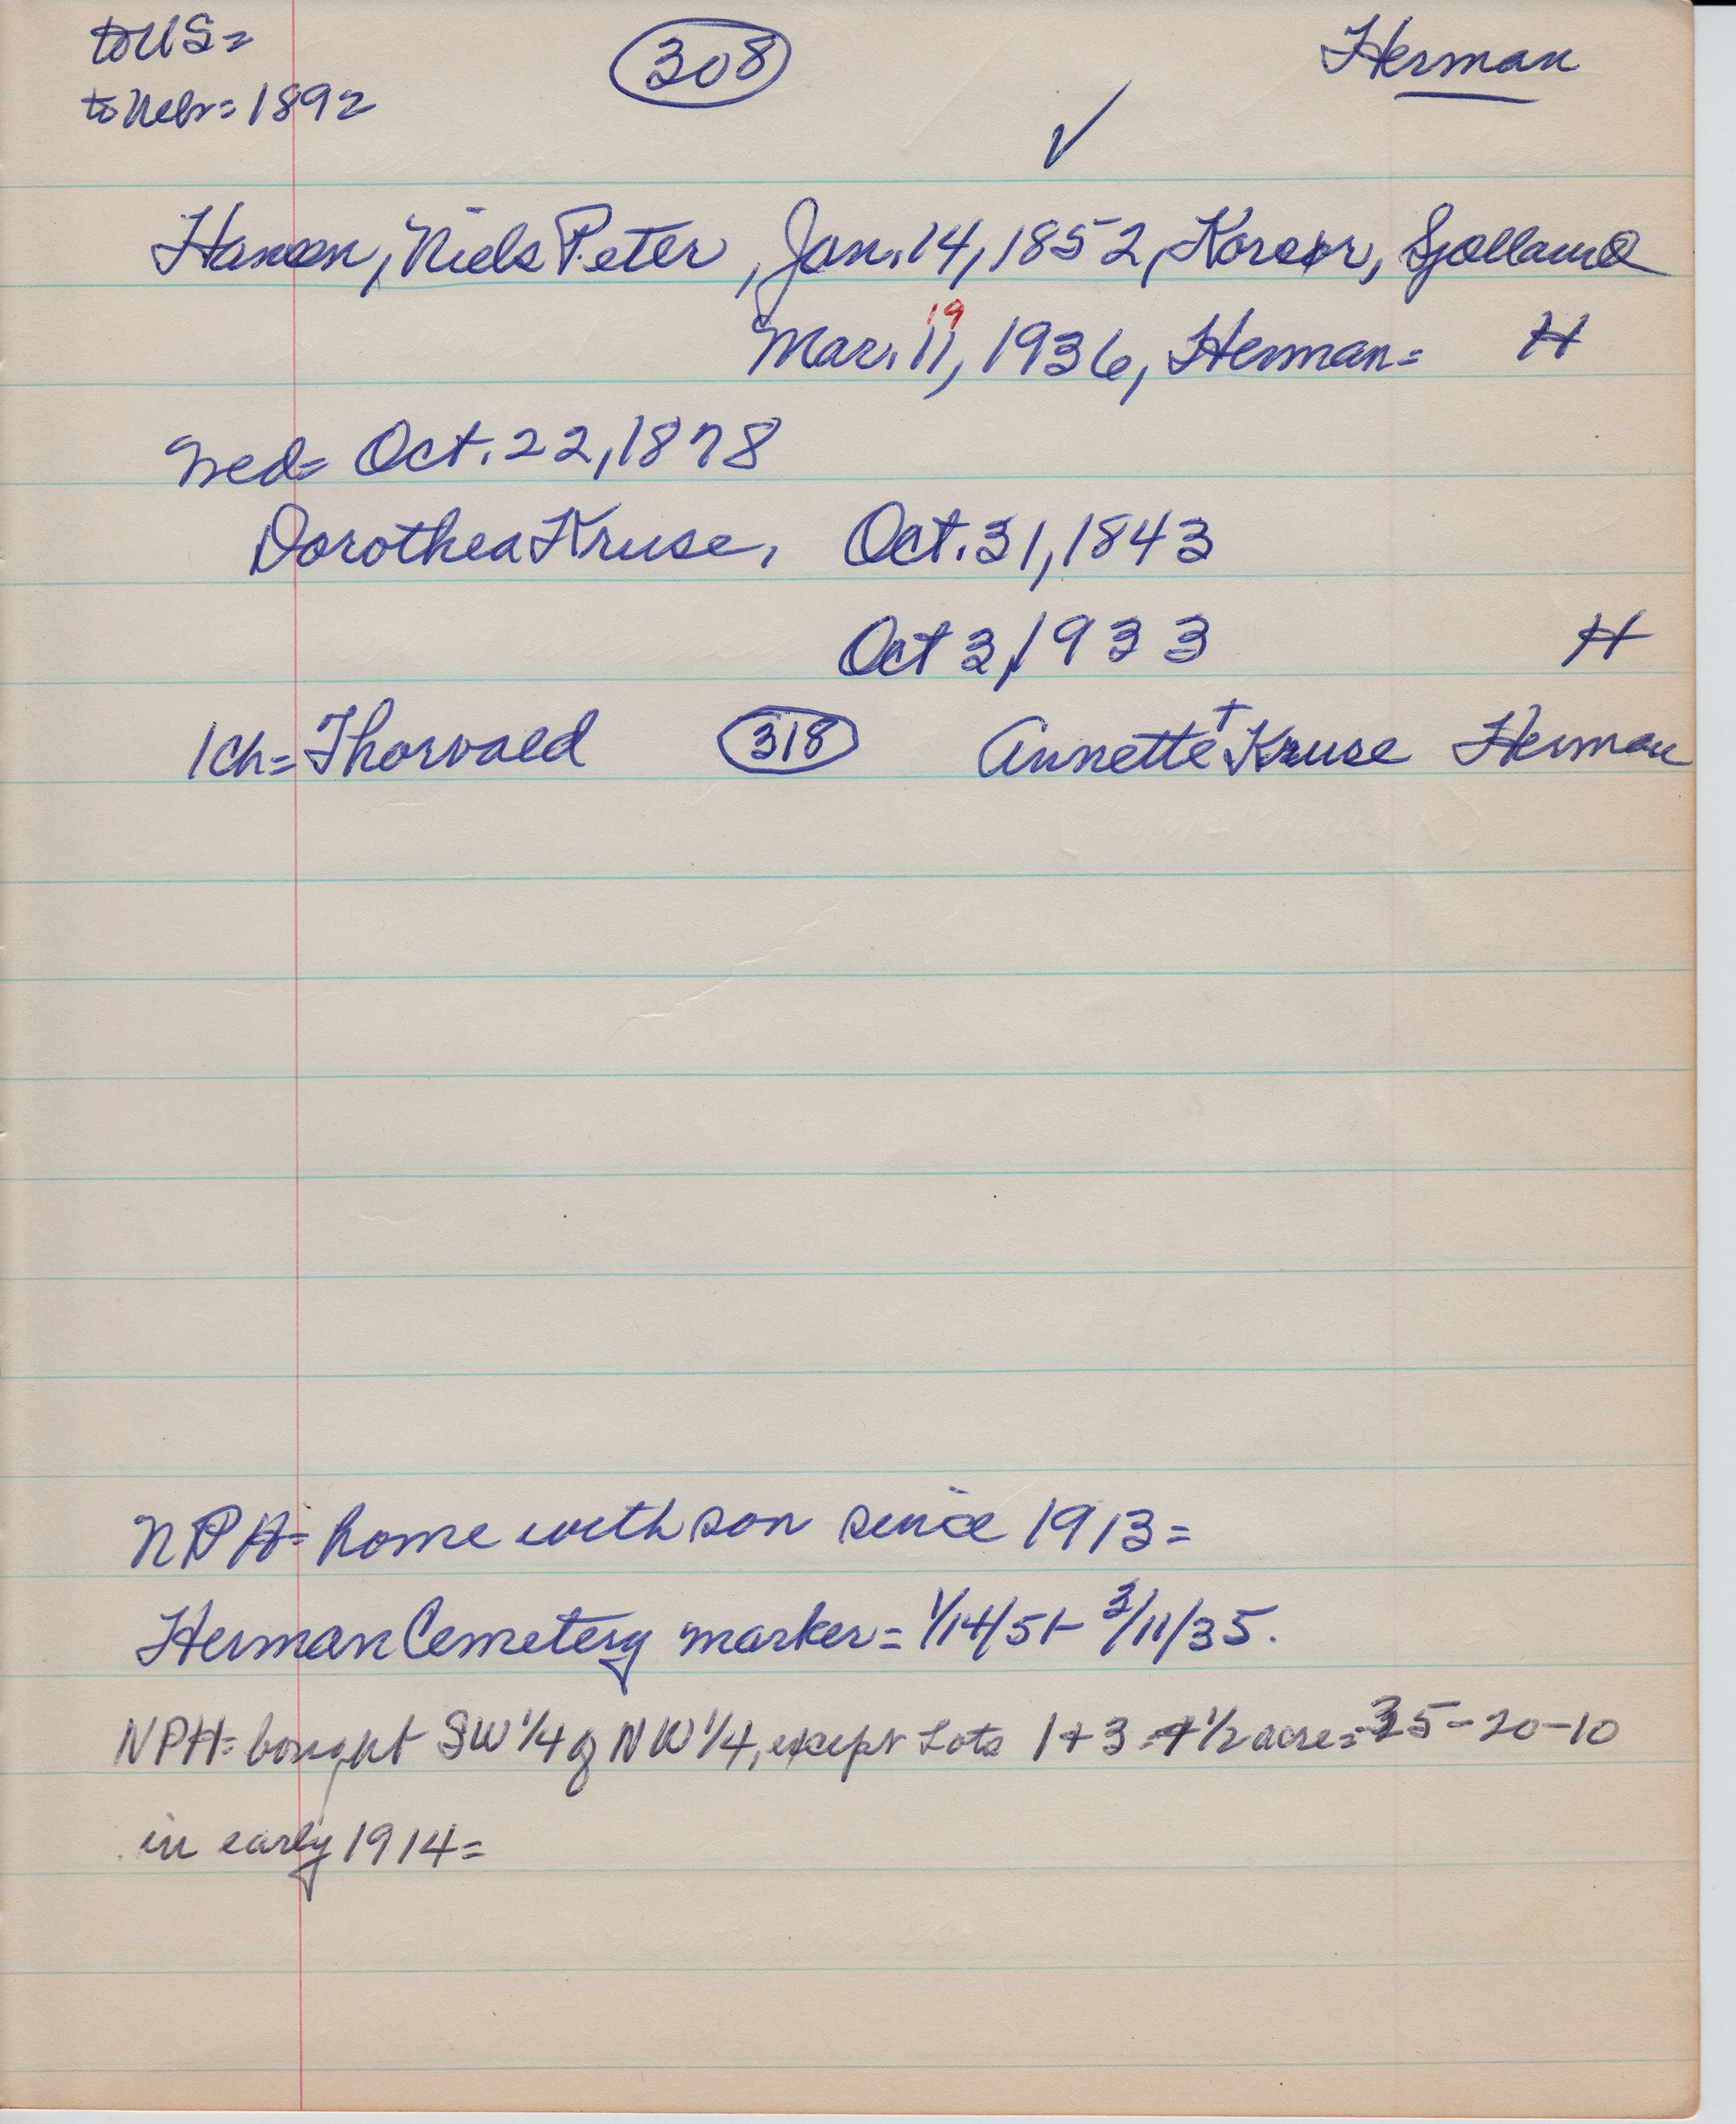 to US=
to Nebr= 1892
308
Herman
✓
Hansen, Niels Peter, Jan. 14, 1852, Korsør, Sjælland
19
Mar. 11, 1936, Herman= H
Wed= Oct. 22, 1878
Dorothea Kruse, Oct. 31, 1843
Oct 3, 1933 H
1 Ch= Thorvald 318 Annette + Kruse Herman
NPH= home with son since 1913=
Herman Cemetery marker= 1/14/51- 3/11/35.
NPH= bought SW 1/4 of NW 1/4, except Lots 1+3 + 1/2 acre= 35-20-10
in early 1914=